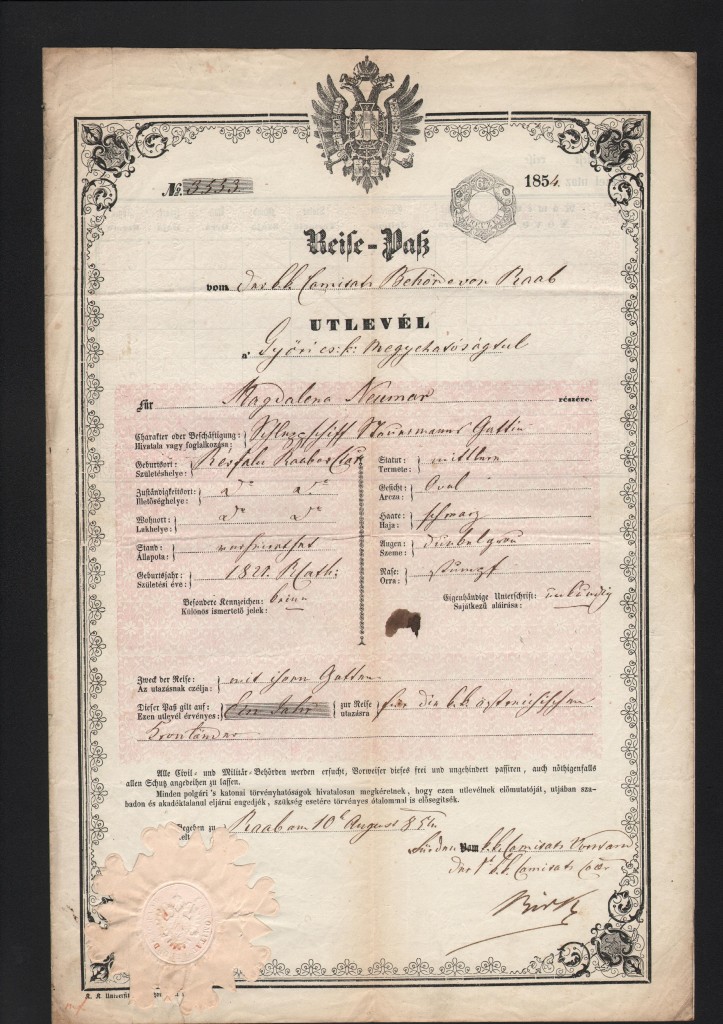 № 3553.
1854.
Reise-Paß
vom der kk Comitats Behörde von Raab
UTLEVÉL
a' Győri cs: k: Megyehatóságtul
Für Magdalena Neumar részére.
Charakter oder Beschäftigung:
Hivatala vagy foglalkozása: Schleppschiff Steuermanns Gattin
Geburtsort:
Születéshelye: Révfalu Raaber
Statur:
Termete: mittlern
Zuständigkeitsort:
Illetőséghelye:
Gesicht:
Arcza: Oval
Wohnort:
Lakhelye:
Haare:
Haja: schwarz
Stand:
Állapota: verheirathet
Augen:
Szeme: dunkelgrau
Geburtsjahr:
Születési éve: Kath:
Nase:
Orra: stumpf
Besondere Kennzeichen: keine
Különös ismertető jelek:
Eigenhändige Unterschrift: unkündig
Sajátkezű aláirása:
Zweck der Reise:
Az utazásnak czélja: mit ihren Gatten
Dieser Paß gilt auf:
Ezen utlevél érvényes: Ein Jahr
zur Reise
utazásra für die k.k. östreichischen
Kronländer
Alle Civil- und Militär-Behörden werden ersucht, Vorweiser dieses frei und ungehindert passiren, auch nöthigenfalls
allen Schutz angedeihen zu lassen.
Minden polgári 's katonai törvényhatóságok hivatalosan megkéretnek, hogy ezen utlevélnek előmutatóját, utjában sza-
badon és akadéktalanul eljárni engedjék, szükség esetére törvényes ótalommal is elősegítsék.
Gegeben zu Raab am 10t August 854
Für den vom k.k. Comitats Vorstand
der k.k. Comitats